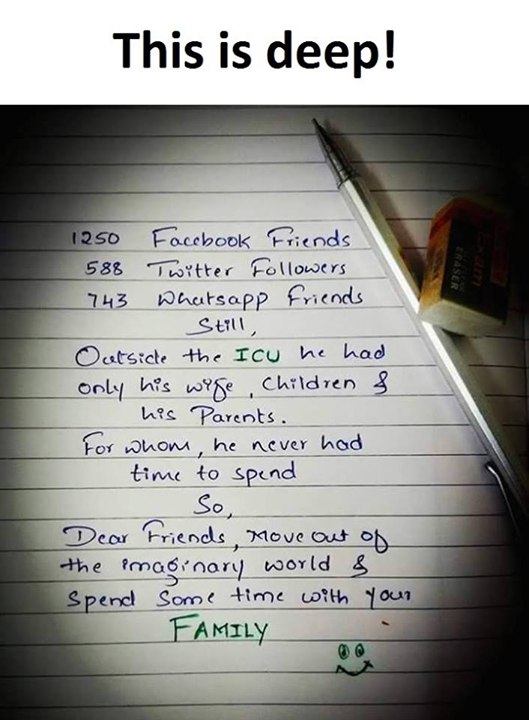 This is deep!
1250 Facebook Friends
588 Twitter Followers
743 Whatsapp Friends
Still,
Outside the ICU he had
only his wife, Children &
his Parents.
For whom, he never had
time to spend
So,
Dear Friends, Move out of
the imaginary world &
Spend Some time with your
FAMILY
ERASER